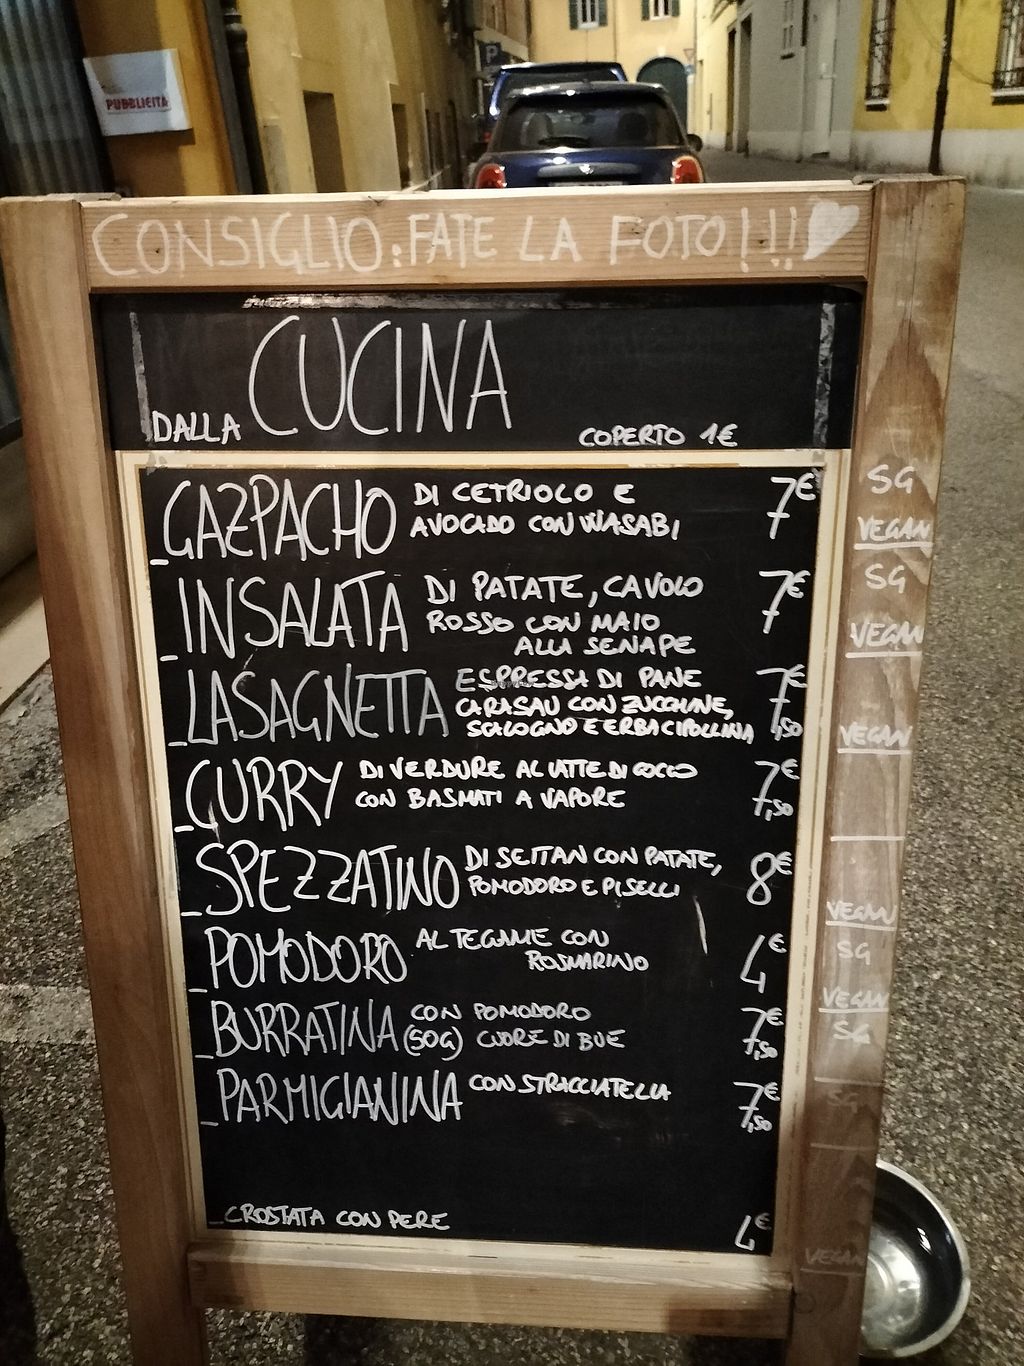 PUBBLICITÀ
P
CONSIGLIO: FATE LA FOTO!!!
DALLA CUCINA
COPERTO 1€
_GAZPACHO DI CETRIOLO E 7€ SG
AVOCADO CON WASABI VEGAN
_INSALATA DI PATATE, CAVOLO 7€ SG
ROSSO CON MAIO VEGAN
ALLA SENAPE
_LASAGNETTA ESPRESSA DI PANE 7€
CARASAU CON ZUCCHINE, 7,50
SCALOGNO E ERBA CIPOLLINA VEGAN
_CURRY DI VERDURE AL LATTE DI COCCO 7€
CON BASMATI A VAPORE 7,50
_SPEZZATINO DI SEITAN CON PATATE, 8€
POMODORO E PISELLI VEGAN
_POMODORO AL TEGAME CON 4€ SG
ROSMARINO VEGAN
_BURRATINA CON POMODORO 7€ SG
(50G) CUORE DI BUE 7,50
_PARMIGIANINA CON STRACCIATELLA 7€ SG
7,50
_CROSTATA CON PERE 4€
VEGAN